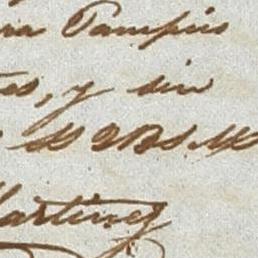 ra Pampis
es, y sin
S Q B S M
Martinez